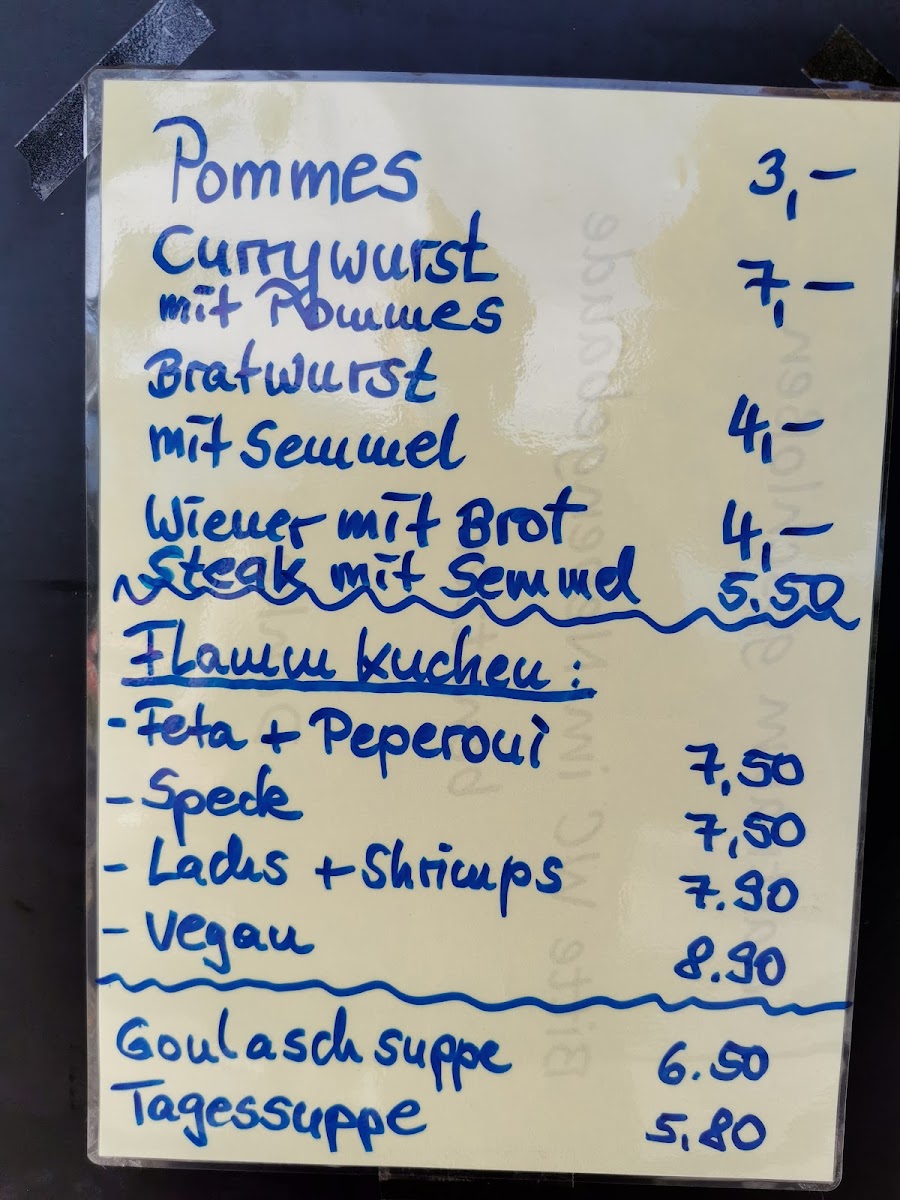 Pommes 3,-
Currywurst
mit Pommes 7,-
Bratwurst
mit Semmel 4,-
Wiener mit Brot 4,-
Steak mit Semmel 5.50
Flammkuchen:
- Feta + Peperoni 7,50
- Speck 7,50
- Lachs + Shrimps 7.90
- Vegan 8.90
Goulaschsuppe 6.50
Tagessuppe 5,80